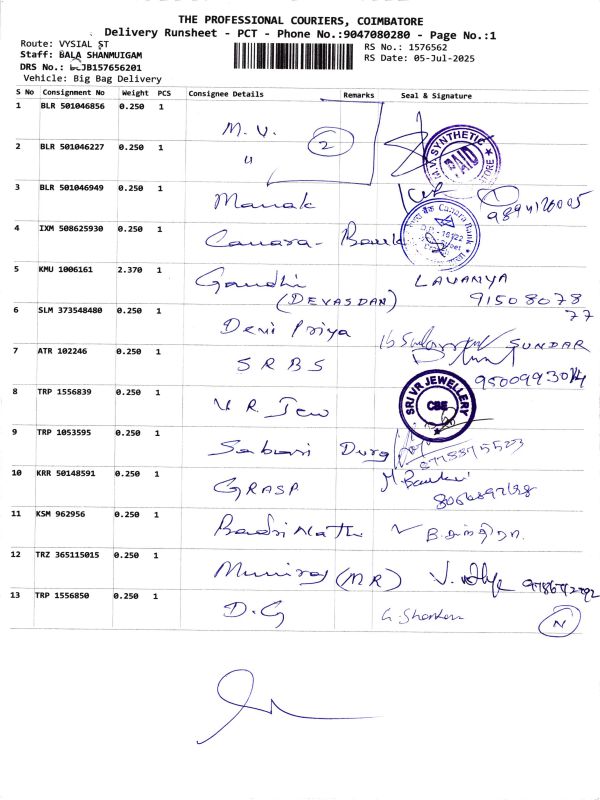 THE PROFESSIONAL COURIERS, COIMBATORE
Delivery Runsheet - PCT - Phone No.:9047080280 - Page No.:1
Route: VYSIAL ST
RS No.: 1576562
Staff: BALA SHANMUIGAM
RS Date: 05-Jul-2025
DRS No.: JB157656201
Vehicle: Big Bag Delivery
S No Consignment No Weight PCS Consignee Details Remarks Seal & Signature
1 BLR 501046856 0.250 1 M.V. 2
M.V. SYNTHETIC PAID
2 BLR 501046227 0.250 1 "
3 BLR 501046949 0.250 1 Manak
4 IXM 508625930 0.250 1 Canara Bank
Canara Bank
5 KMU 1006161 2.370 1 Gandhi LAVANYA
(DEVASDAN) 91508078
77
6 SLM 373548480 0.250 1 Devi Priya SUNDAR
7 ATR 102246 0.250 1 S R B S
8 TRP 1556839 0.250 1 V.R. Jew
SRI VR JEWELLERY CBE
9 TRP 1053595 0.250 1 Sabari Durga
10 KRR 50148591 0.250 1 GRASP
11 KSM 962956 0.250 1 BadriNath
12 TRZ 365115015 0.250 1 Muniraj (MR)
13 TRP 1556850 0.250 1 D.G N